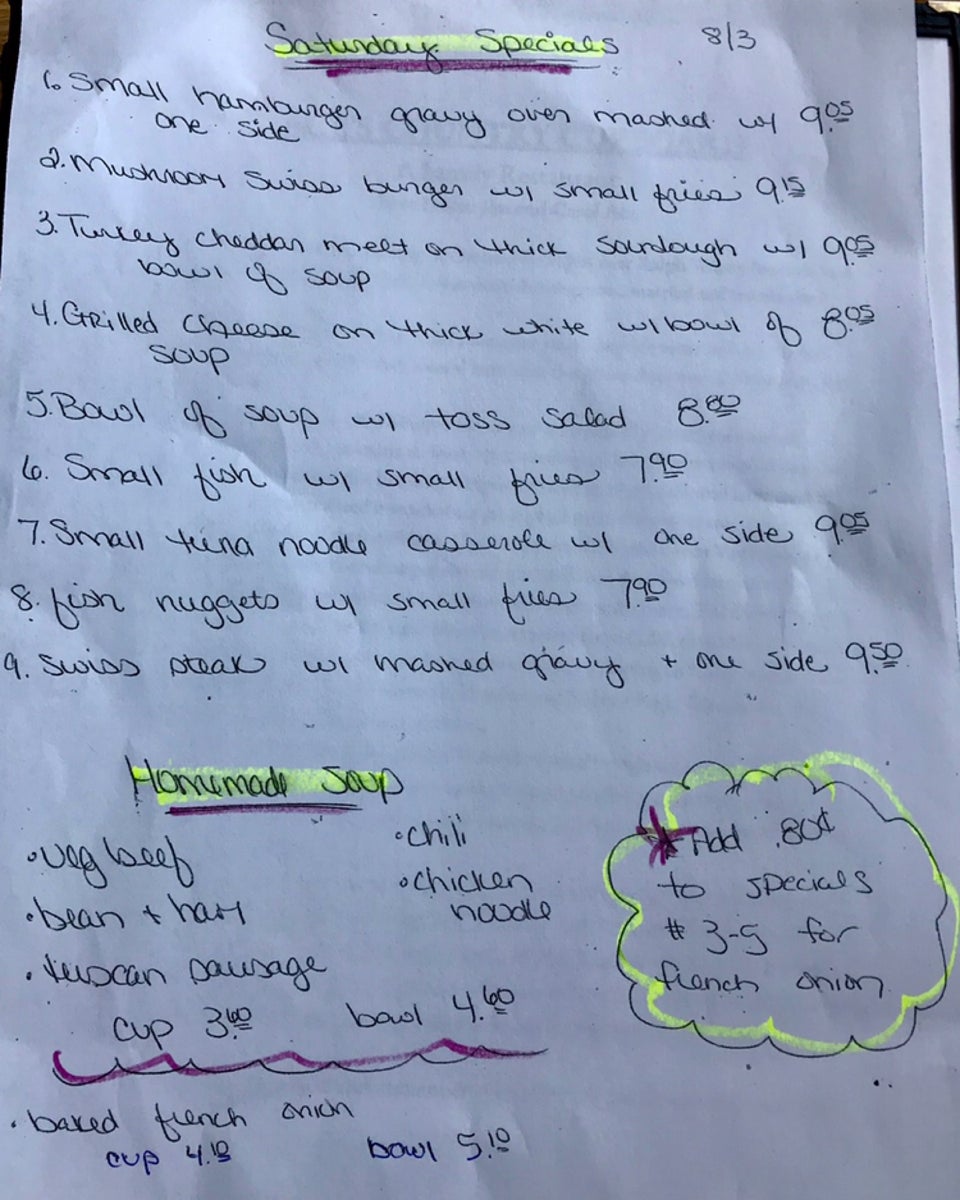 Saturday Specials 8/3
1. Small hamburger gravy over mashed w/ 9.05
one side
2. Mushroom Swiss burger w/ small fries 9.15
3. Turkey cheddar melt on thick sourdough w/ 9.05
bowl of soup
4. Grilled cheese on thick white w/ bowl of 8.05
soup
5. Bowl of soup w/ toss salad 8.80
6. Small fish w/ small fries 7.90
7. Small tuna noodle casserole w/ one side 9.05
8. fish nuggets w/ small fries 7.90
9. Swiss steak w/ mashed gravy + one side 9.50
Homemade Soup
• veg beef
• bean + ham
• tuscan sausage
• chili
• chicken
noodle
cup 3.60 bowl 4.60
• baked french onion
cup 4.10 bowl 5.10
* Add .80¢
to specials
# 3-5 for
french onion